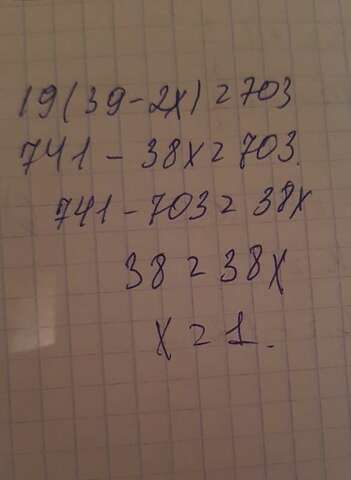 19(39-2x)=703
741-38x=703.
741-703=38x
38=38x
x=1.